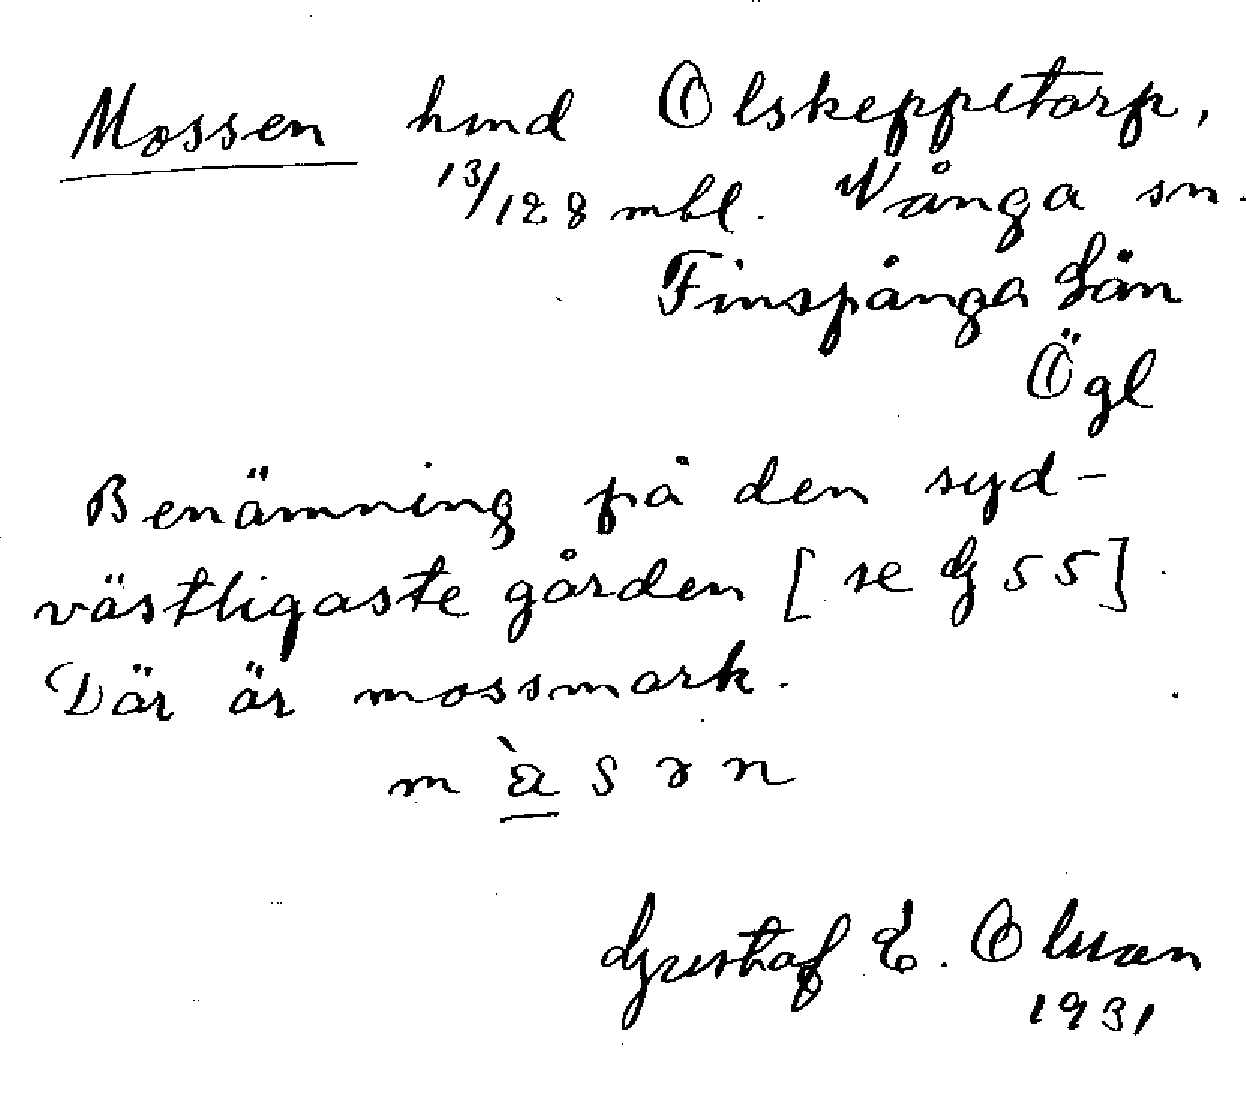 Mossen hmd Olskeppetorp,
13/128 mbl. Vånga sn.
Finspånga Län
Ögl
Benämning på den syd-
västligaste gården [se G 55].
Där är mossmark.
m à s ə n
Gustaf E. Olsson
1931